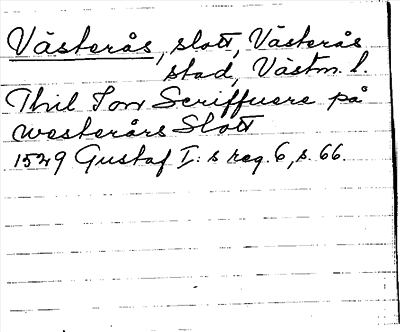 Västerås, slott, Västerås
stad, Västm. l.
Thil Jon Scriffuere på
westerårs Slott
1529 Gustaf I:s reg. 6, s. 66.